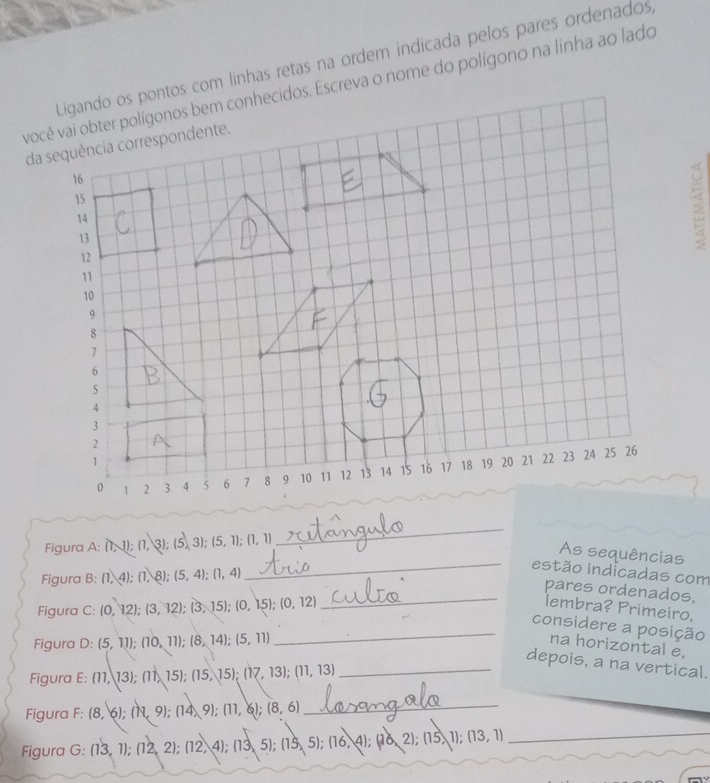 Ligando os pontos com linhas retas na ordem indicada pelos pares ordenados,
você vai obter polígonos bem conhecidos. Escreva o nome do polígono na linha ao lado
da sequência correspondente.
MATEMÁTICA
16
15
14
13
12
11
10
9
8
7
6
5
4
3
2
1
C
D
E
F
B
G
A
0 1 2 3 4 5 6 7 8 9 10 11 12 13 14 15 16 17 18 19 20 21 22 23 24 25 26
Figura A: (1, 1); (1, 3); (5, 3); (5, 1); (1, 1) retângulo
Figura B: (1, 4); (1, 8); (5, 4); (1, 4) trio
Figura C: (0, 12); (3, 12); (3, 15); (0, 15); (0, 12)
Figura D: (5, 11); (10, 11); (8, 14); (5, 11)
Figura E: (11, 13); (11, 15); (15, 15); (17, 13); (11, 13)
Figura F: (8, 6); (11, 9); (14, 9); (11, 6); (8, 6) losangolo
Figura G: (13, 1); (12, 2); (12, 4); (13, 5); (15, 5); (16, 4); (16, 2); (15, 1); (13, 1)
As sequências
estão indicadas com
pares ordenados,
lembra? Primeiro,
considere a posição
na horizontal e,
depois, a na vertical.